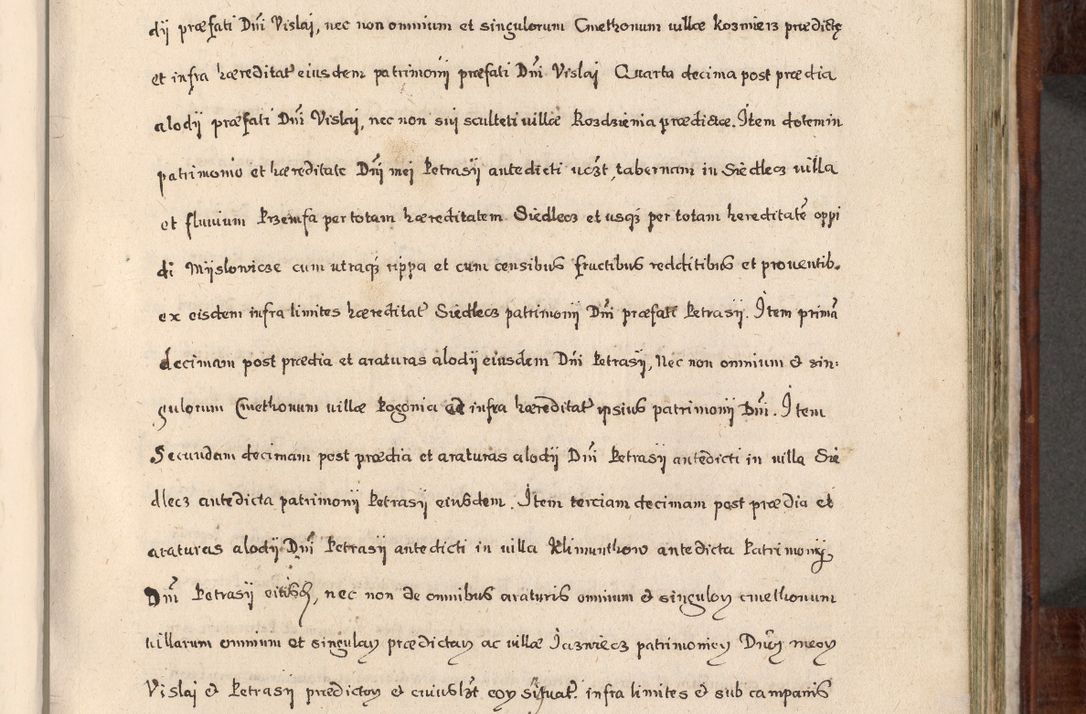 dij præfati Dñi Vislai, nec non omnium et singulorum Cmethonum villæ Kozmierz prædictę
et infra hæreditat̃ eiusdem patrimonij præfati Dñi Vislaj Quarta decima post prædia
alodij præfati Dñi Vislaj, nec non sui sculteti villæ Kozdzienia prædictæ. Item dotem in
patrimonio et hæreditate Dñi mei Petrasij antedicti uczt, tabernam in Siedlecz villa
et fluvium Przemsa per totam hæreditatem Siedlecz et usq̃ per totam hereditatẽ oppi
di Mijslowicze cum utraq̃ rippa et cum censibus fructibus redditibus et proventib.
ex eisdem infra limites hæreditat̃ Siedlecz patrimonij Dñi præfati Petrasij. Item primã
decimam post prædia et araturas alodij eiusdem Dñi Petrasij, Nec non omnium & sin:
gulorum Cmethonum villæ Pogonia ad infra hæreditat̃ ipsius patrimonij Dñi. Item
Secundam decimam post prædia et araturas alodij Dñi Petrasij antedicti in villa Sie
dlecz antedicta patrimonij Petrasij eiusdem. Item terciam decimam post prædia et
araturas alodij Dñi Petrasij antedicti in villa Klimunthow antedicta Patrimonij
Dñi Petrasij, nec non de omnibus araturis omnium & singuloꝝ cmethonum
villarum omnium et singulaꝝ prædictaꝝ ac villæ Jazwiecz patrimonieꝝ Dñoꝝ meoꝝ
Vislaj & Petrasij prædictoꝝ & cuiuslꝫt eoꝝ situat̃. infra limites & sub campanis